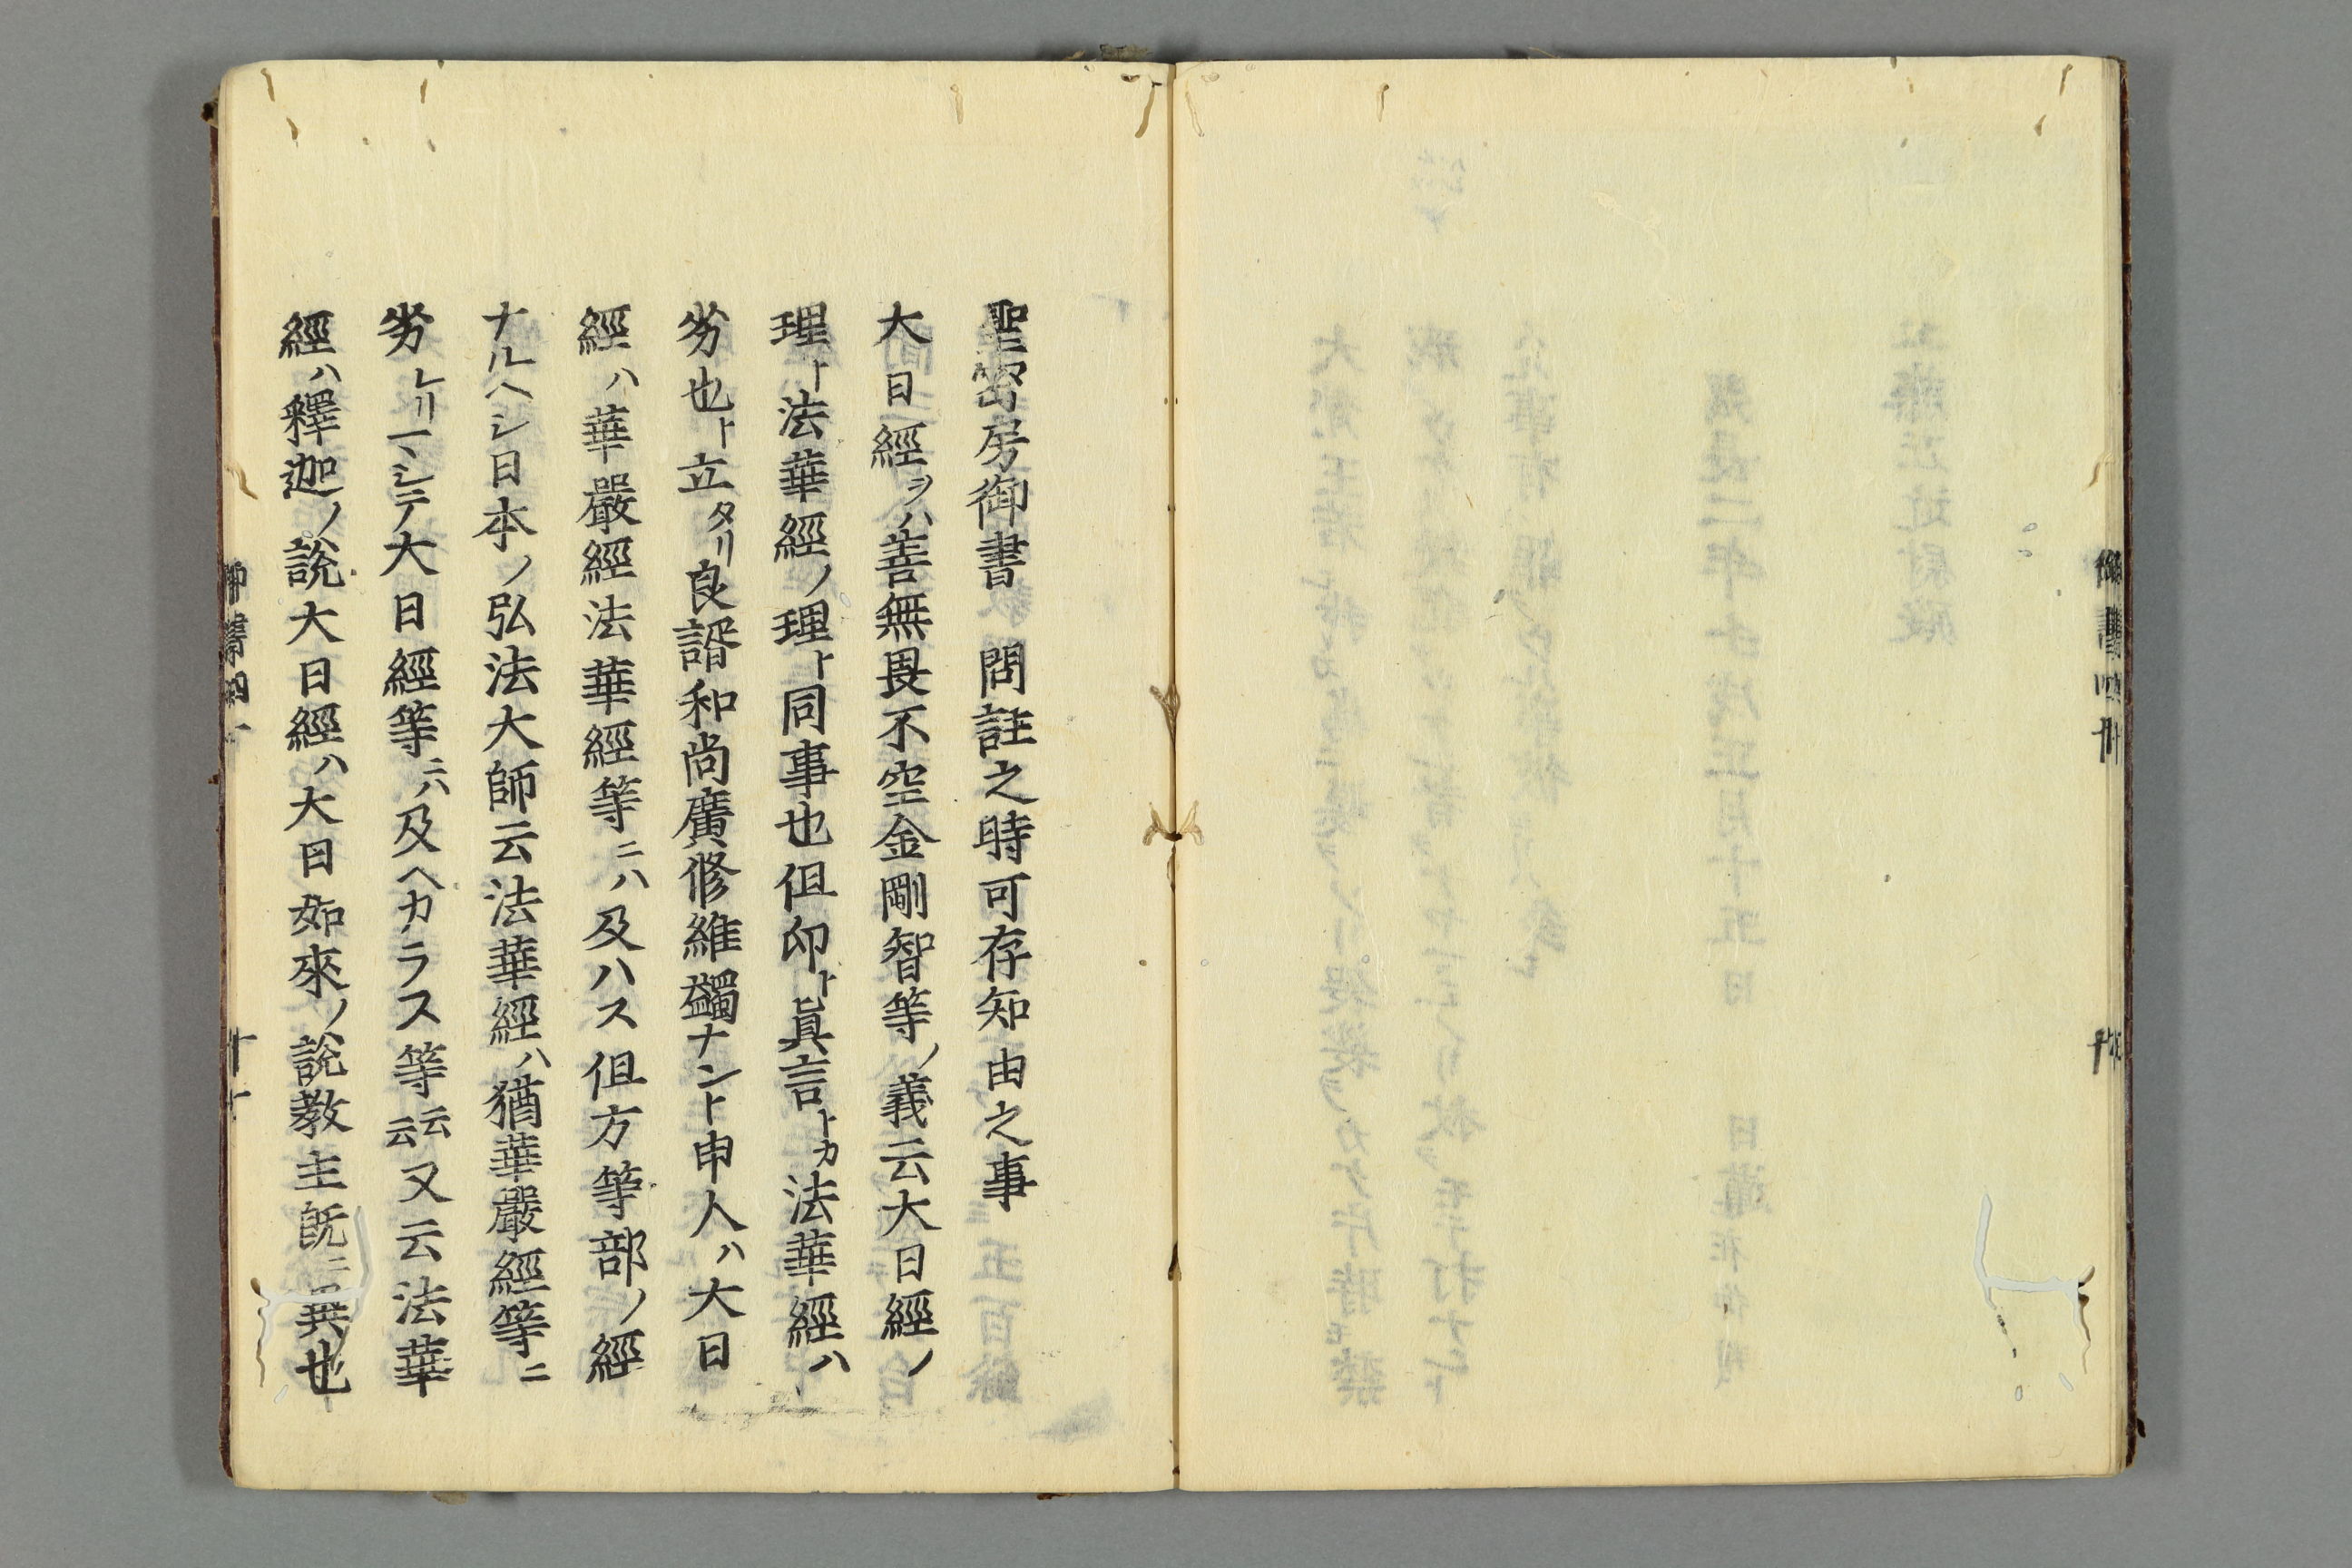 聖密房御書　問註之時可存知由之事
大日經ヲハ善無畏不空金剛智等ノ義云大日經ノ
理ト法華經ノ理ト同事也但印ト眞言トカ法華經ハ
劣也ト立タリ良諝和尚廣修維蠲ナント申人ハ大日
經ハ華嚴經法華經等ニハ及ハス但方等部ノ經
ナルヘシ日本ノ弘法大師云法華經ハ猶華嚴經等ニ
劣レリマシテ大日經等ニハ及ヘカラス等云云又云法華
經ハ釋迦ノ說大日經ハ大日如來ノ說教主旣ニ異也